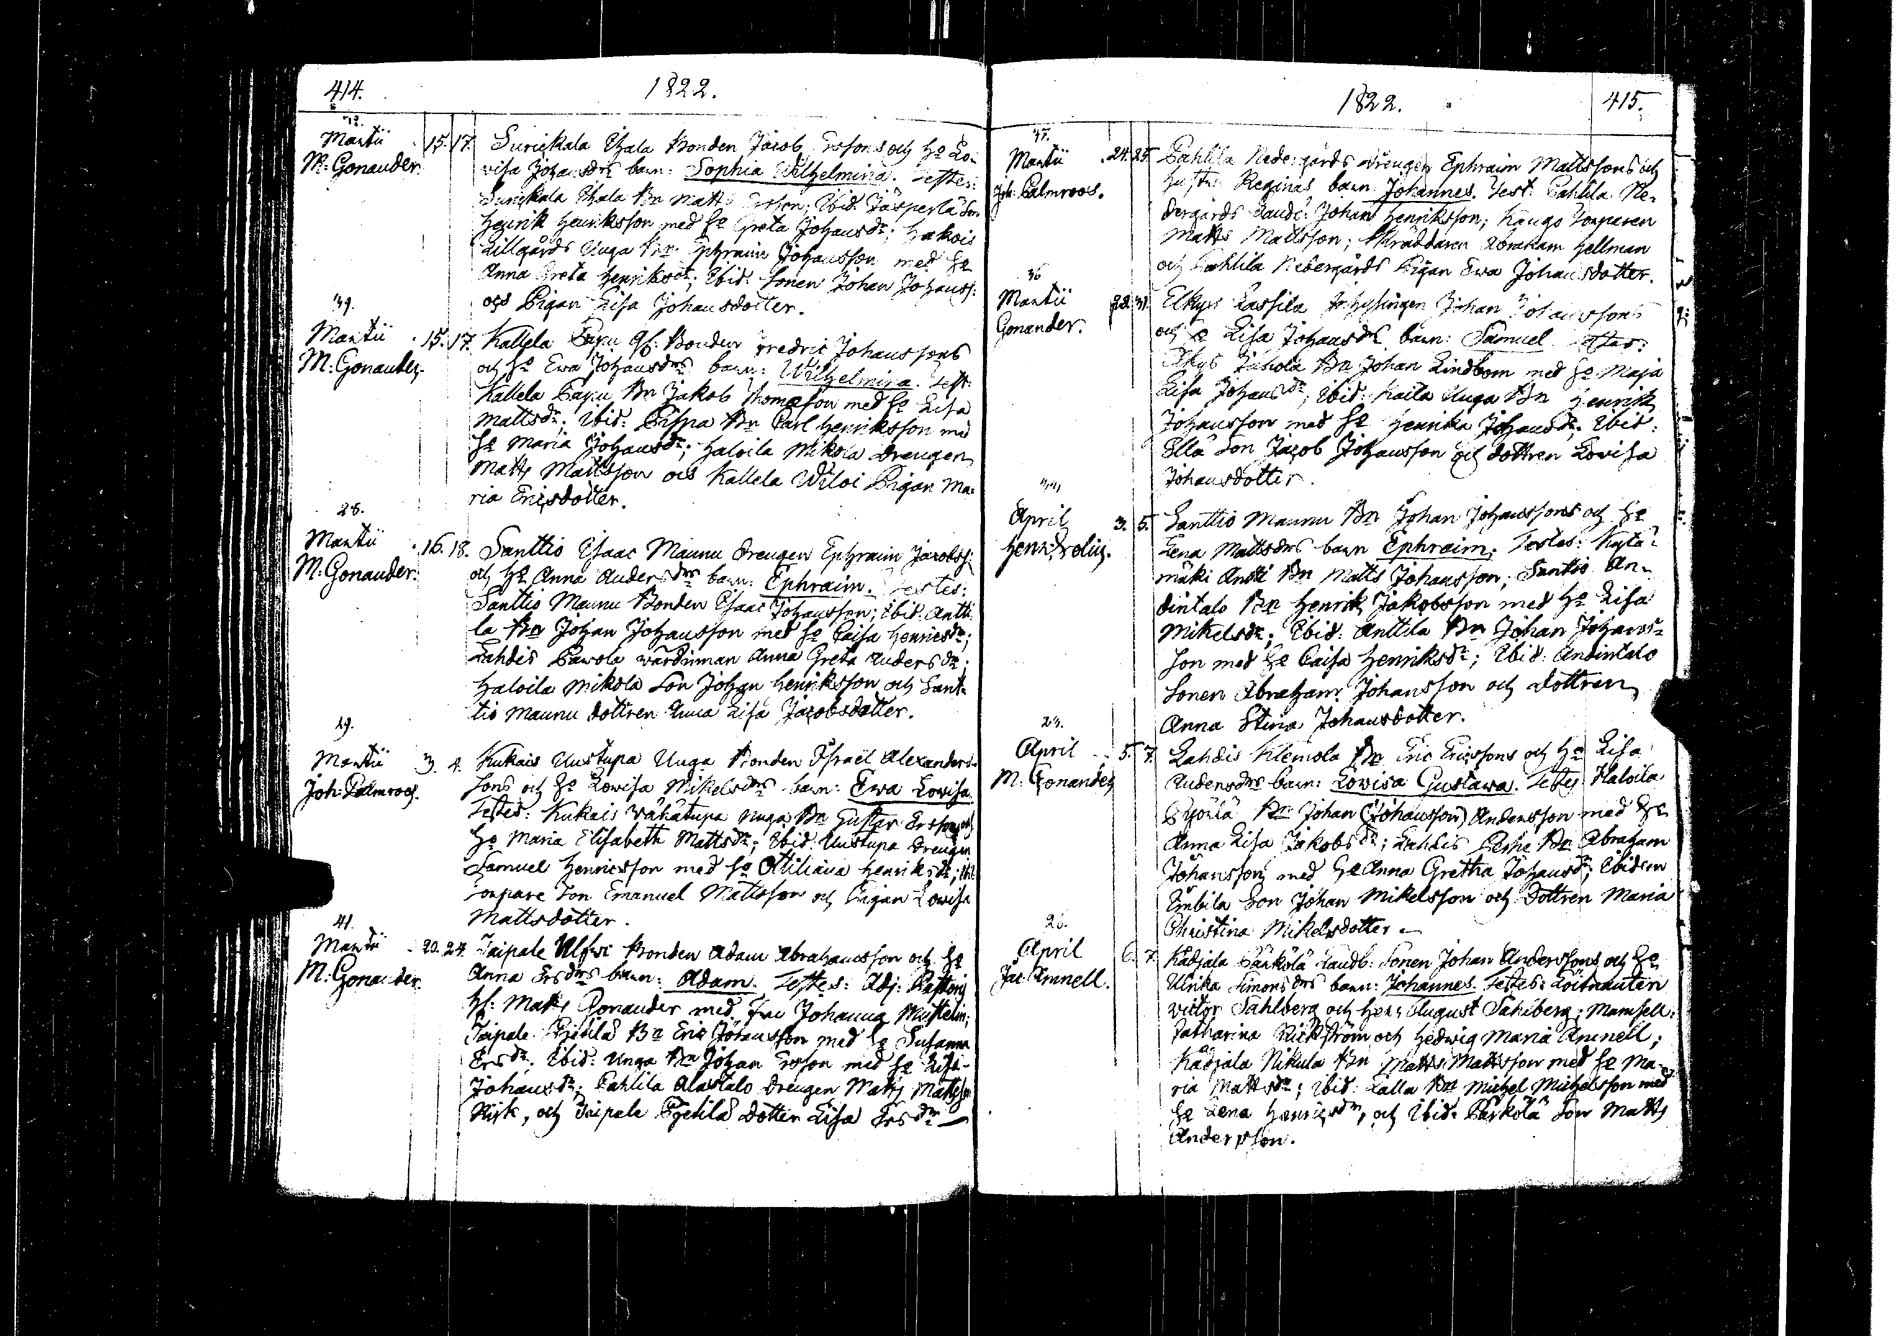 414.
1822.
Martii 15. 17. Surickala Ehala Bonden Jacob Erssons och He Lo-
M: Gonander. visa Johansdrs barn: Sophia Wilhelmina. Testes:
Surickala Ehala Bn Matts Ersson; Ibid: Jäsperlä Son
Henrik Henriksson med He Greta Johansdr; Hakois
Lillgårds Unga Bn Ephraim Johansson med He
Anna Greta Henriksdr; Ibid: Sonen Johan Johanss:
och Pigan Lisa Johansdotter.
39.
Martii 15. 17. Kallela Papu Bonden Fredric Johanssons
M: Gonander. och He Ewa Johansdrs barn: Wilhelmina. Test:
Kallela Papu Bn Jakob Thomasson med He Lisa
Mattsdr; Ibid: Pispa Bn Carl Henriksson med
He Maria Johansdr; Haloila Mikola Drengen
Matts Mattsson och Kallela Wiloi Pigan Ma-
ria Ericsdotter.
28.
Martii 16. 18. Santtio Esaac Maunu Drengen Ephraim Jacobss:
M: Gonander. och He Anna Andersdrs barn: Ephraim. Testes:
Santtio Maunu Bonden Esaac Johansson; Ibid: Antti-
la Bn Johan Johansson med He Caisa Henricsdr;
Lahdis Pawola wärdinnan Anna Greta Andersdr;
Haloila Mikola Son Johan Henriksson och Sant-
tio Maunu dottren Anna Lisa Jacobsdotter.
29.
Martii 3. 4. Kukais Uustupa Unga Bonden Israël Alexanders-
Joh: Palmroos. sons och He Lowisa Mikelsdrs barn: Ewa Lowisa.
Testes: Kukais Wähätupa Unga Bn Gustav Ersson och
He Maria Elisabeth Mattsdr; Ibid: Uustupa Drengen
Samuel Henricsson med He Otiliana Henriksdr; Ibid
Torpare Son Emanuel Mattsson och Pigan Lowisa
Mattsdotter.
41.
Martii 20. 24. Taipale Ulfwi Bonden Adam Abrahamsson och He
M: Gonander. Anna Ersdrs barn: Adam. Testes: Adj: Pastoris
Hr: Matts Gonander med Fru Johanna Mustelin;
Taipale Pietilä Bn Eric Johansson med He Susanna
Ersdr; Ibid: Unga Bn Johan Ersson med He Lisa
Johansdr; Pahlila Alastalo Drengen Matts Mattsson
Kisk, och Taipale Pietilä Dotter Lisa Ersdr
1822.
415.
37.
Martii 24. 25. Pahlila Nedergårds Drengen Ephraim Mattssons och
Joh: Palmroos. Hustr: Reginas barn: Johannes. Test: Pahlila Ne-
dergårds Landb: Johan Henriksson; Kaugo Torparen
Matts Mattsson; Skräddaren Abraham Hellman
och Pahlila Nedergårds Pigan Ewa Johansdotter.
36
Martii 22. 31. Elkyis Lassila Inhysingen Johan Johanssons
Gonander. och He Lisa Johansdrs barn: Samuel. Testes:
Elkys Juhola Bn Johan Lindbom med He Maja
Lisa Johansdr; Ibid: Kaila Unga Bn Henrik
Johansson med He Henrika Johansdr; Ibid:
Ellä Son Jacob Johansson och dottren Lovisa
Johansdotter.
44
April 3. 5. Santtio Maunu Bn Johan Johanssons och He
Henr: Frolin. Lena Mattsdrs barn Ephraim; Testes: Kytä-
mäki Antti Bn Matts Johansson; Santio An-
dintalo Bn Henrik Jakobsson med He Lisa
Mikelsdr; Ibid: Anttila Bn Johan Johans-
son med He Caisa Henriksdr; Ibid: Andintalo
Sonen Abraham Johansson och Dottren
Anna Stina Johansdotter.
24.
April 5. 7. Lahdis Klemola Bn Eric Ericssons och He Lisa
M: Gonander Andersdrs barn: Lowisa Gustawa. Testes Haloila
Pyöriä Bn Johan (Johansson) Andersson med He
Anna Lisa Jakobsdr; Lahdis Perhe Bn Abraham
Johansson med He Anna Gretha Johansdr; Ibidem
Embila Son Johan Mikelsson och Dottren Maria
Christina Mikelsdotter.
26.
April 6. 7. Kädjala Pärkölä Landb: Sonen Johan Anderssons och He
Jac: Amnell. Ulrika Simonsdrs barn: Johannes. Testes: Löitnanten
Victor Sahlberg och Herr August Sahlberg; Mamsell:
Catharina Rickström och Hedwig Maria Amnell;
Kädjala Nikula Bn Matts Mattsson med He Ma-
ria Mattsdr; Ibid: Lalla Bn Michel Michelsson med
He Lena Henricsdr, och Ibid: Pärkölä Son Matts
Andersson.